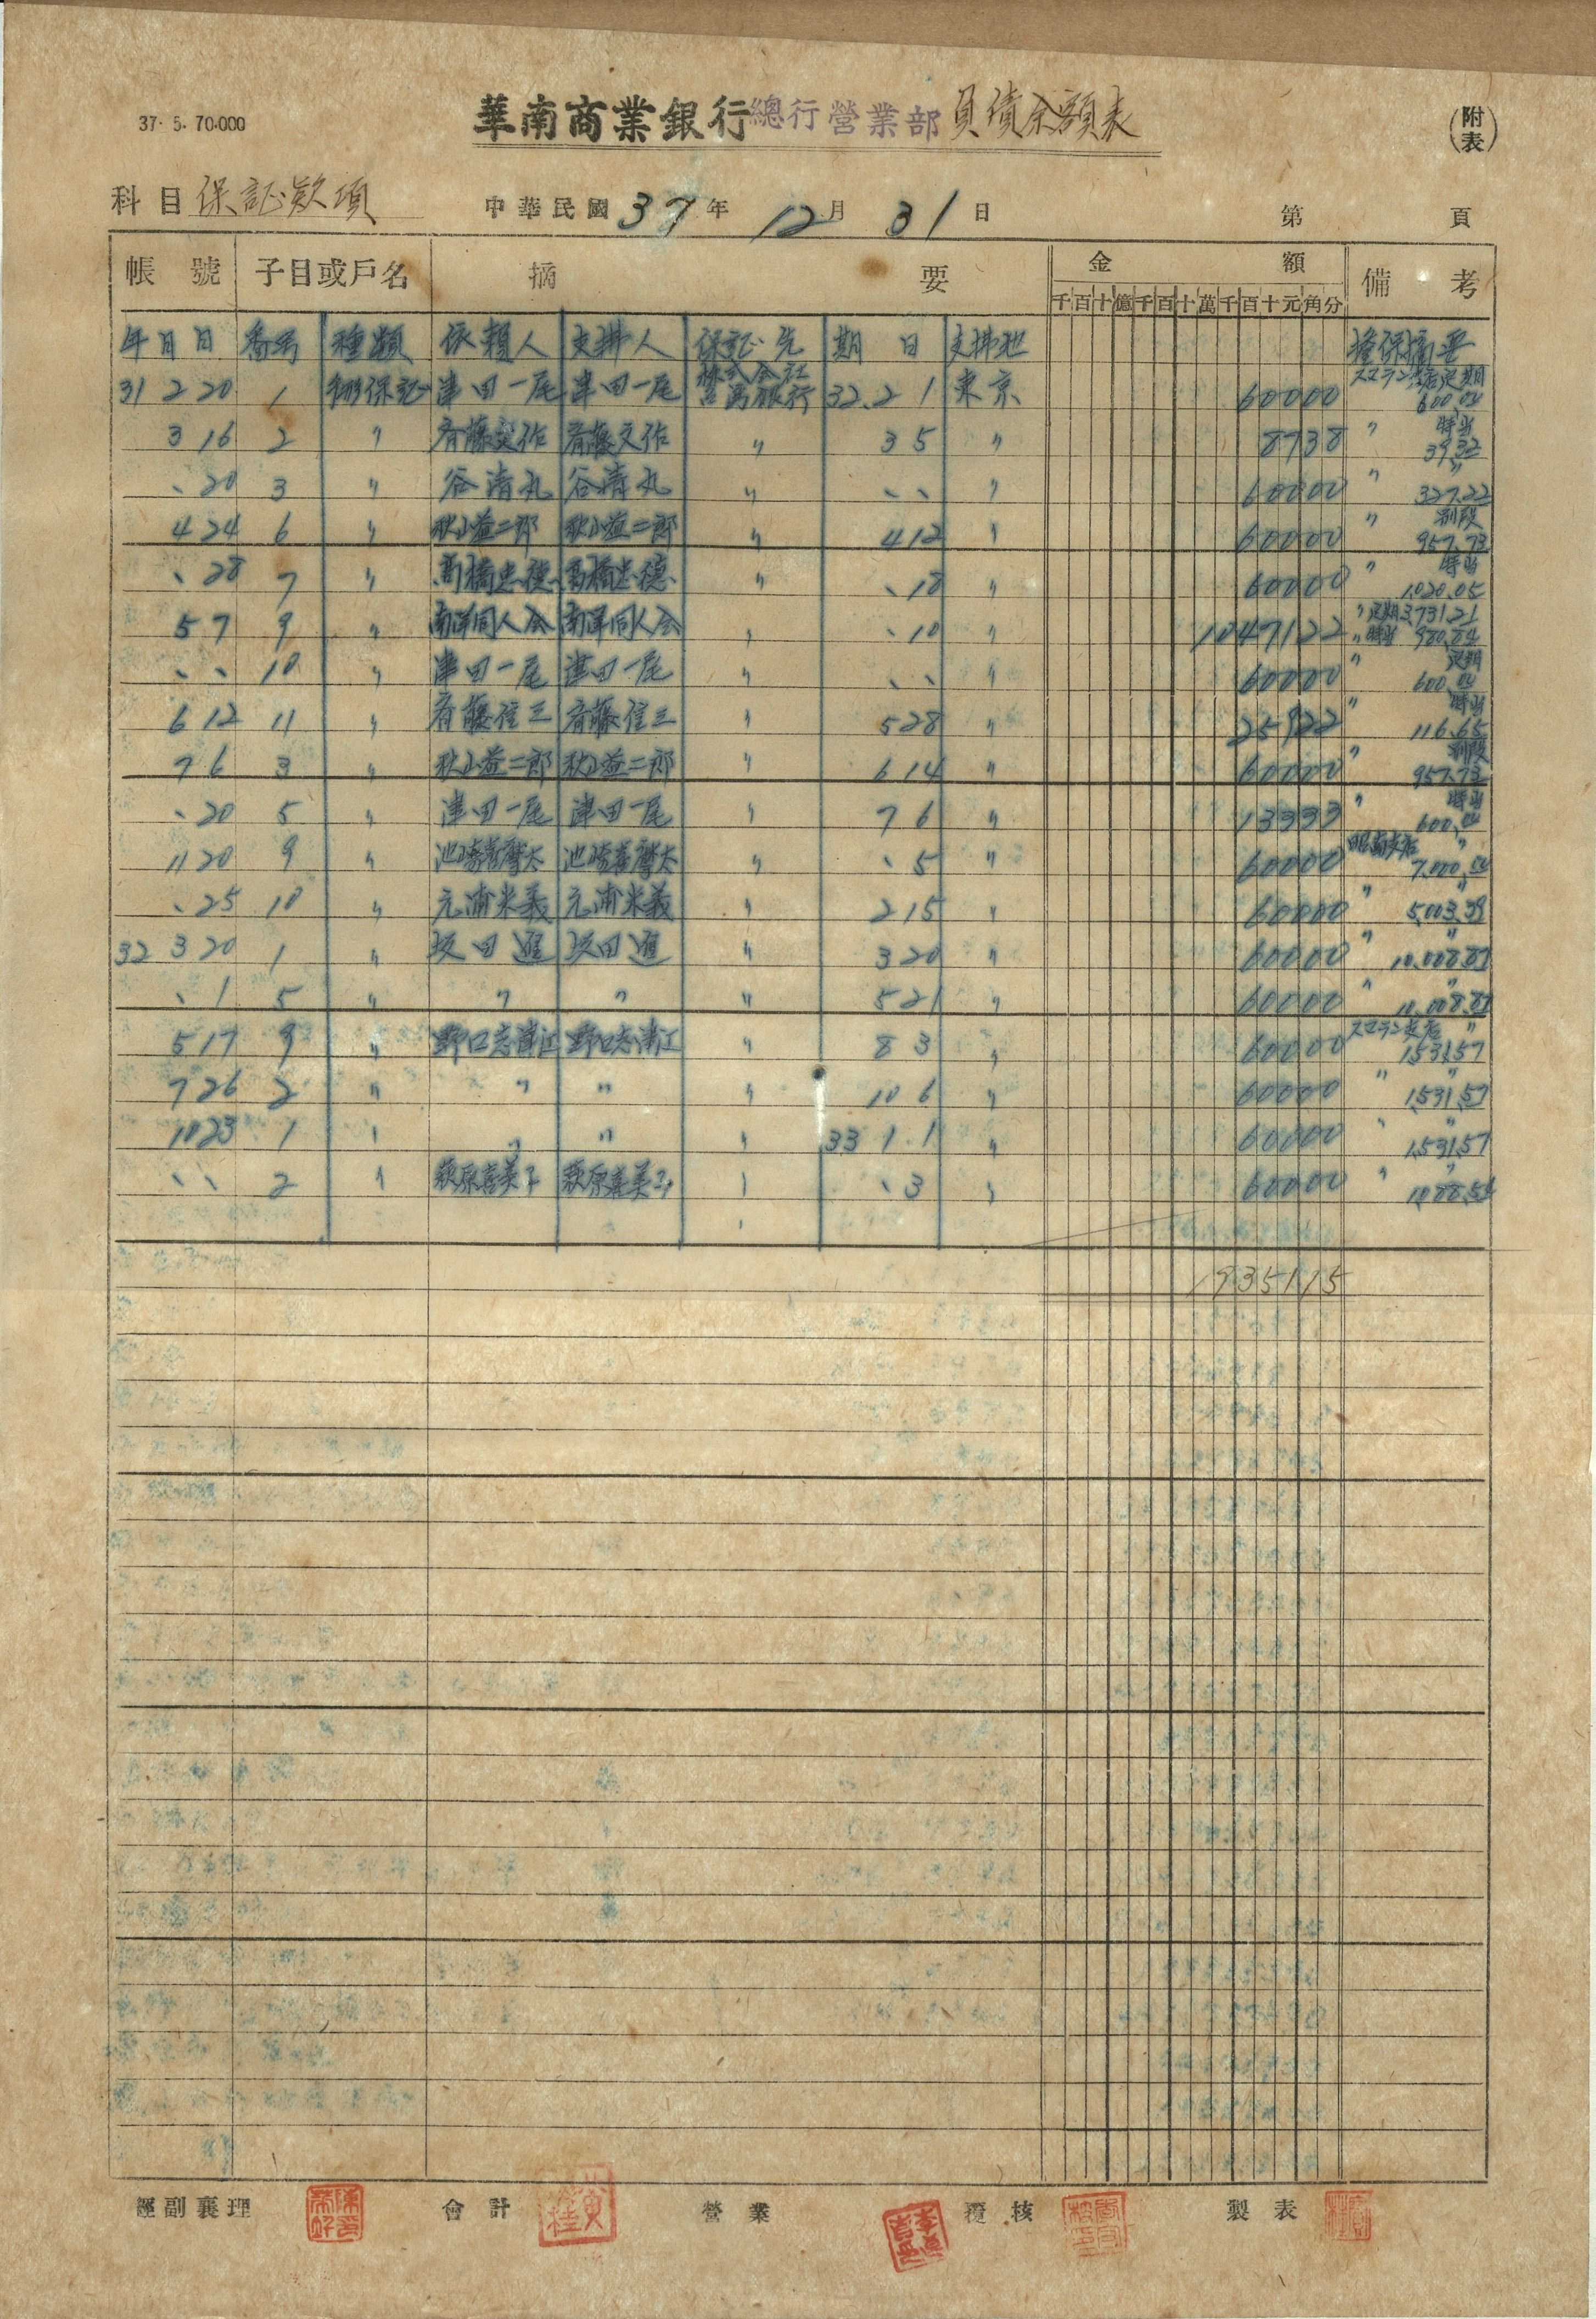 37. 5. 70.000
華南商業銀行總行營業部負債余額表
(附表)
科目 保証欵項 中華民國 37 年 12 月 31 日 第 頁
帳號 子目或戶名 摘要 金額 備考
千百十億千百十萬千百十元角分
年月日 番号 種類 依頼人 支拂人 保証先 期日 支拂地 擔保摘要
31 2 20 1 保証 津田一尾 津田一尾 株式会社 銀行 32. 2 1 東京 60000 スマラン支店定期 600.00
3 16 2 〃 斉藤文作 斉藤文作 〃 3 5 〃 8738 〃 特当 39.32
、 20 3 〃 谷清丸 谷清丸 〃 、、 〃 60000 〃 〃 327.22
4 24 6 〃 秋山益二郎 秋山益二郎 〃 4 12 〃 60000 〃 別段 957.73
、 28 7 〃 高橋忠德 高橋忠德 〃 、 18 〃 60000 〃 特当 1,020.05
5 7 9 〃 南洋同人会 南洋同人会 〃 、 10 〃 1047122 〃 定期 3,731.21 〃 特当 980.84
、、 10 〃 津田一尾 津田一尾 〃 、、 〃 60000 〃 定期 600.00
6 12 11 〃 斉藤信三 斉藤信三 〃 5 28 〃 25922 〃 特当 116.65
7 6 3 〃 秋山益二郎 秋山益二郎 〃 6 14 〃 60000 〃 別段 957.73
、 20 5 〃 津田一尾 津田一尾 〃 7 6 〃 13333 〃 特当 600.00
11 20 9 〃 池崎喜摩太 池崎喜摩太 〃 、 5 〃 60000 昭南支店 〃 7,000.00
、 25 10 〃 元浦米義 元浦米義 〃 2 15 〃 60000 〃 〃 5,003.39
32 3 20 1 〃 坂田進 坂田進 〃 3 20 〃 60000 〃 〃 10,008.87
、 1 5 〃 〃 〃 〃 5 21 〃 60000 〃 〃 10,008.87
5 17 9 〃 野口志津江 野口志津江 〃 8 3 〃 60000 スマラン支店 〃 1,531.57
7 26 2 〃 〃 〃 〃 10 6 〃 60000 〃 〃 1,531.57
10 23 1 〃 〃 〃 〃 33 1. 1 〃 60000 〃 〃 1,531.57
、、 2 〃 萩原喜美子 萩原喜美子 〃 、 3 〃 60000 〃 〃
1935115
經副襄理 會計 營業 覆核 製表